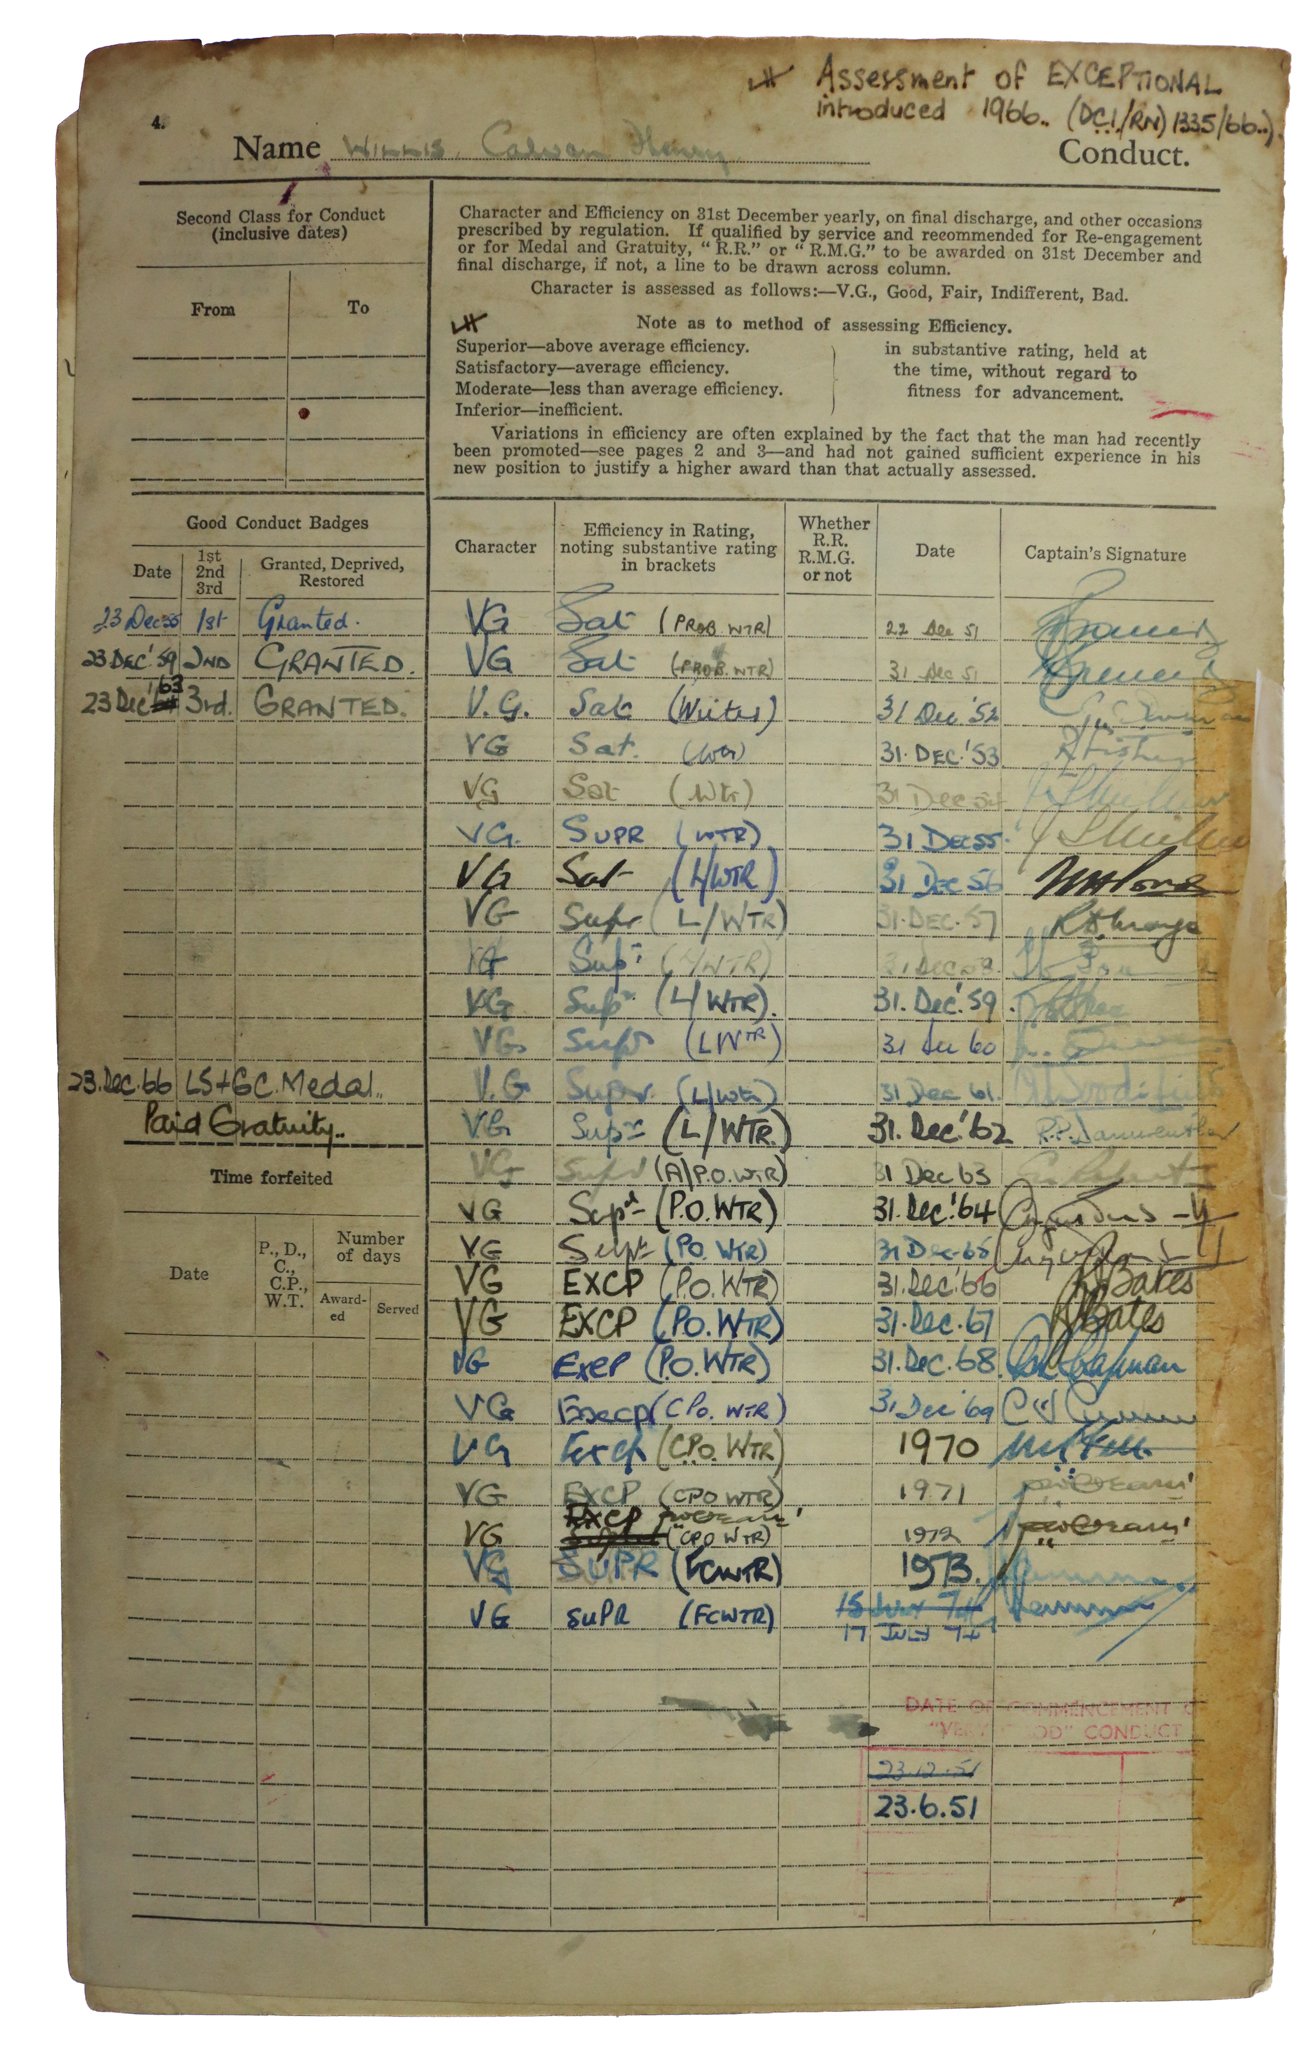 Assessment of EXCEPTIONAL
introduced 1966.. (DCI/RN) 1335/66..).
4.
Name WILLIS. Henry Conduct.
Second Class for Conduct
(inclusive dates)
From To
Character and Efficiency on 31st December yearly, on final discharge, and other occasions
prescribed by regulation. If qualified by service and recommended for Re-engagement
or for Medal and Gratuity, "R.R." or "R.M.G." to be awarded on 31st December and
final discharge, if not, a line to be drawn across column.
Character is assessed as follows:—V.G., Good, Fair, Indifferent, Bad.
Note as to method of assessing Efficiency.
Superior—above average efficiency.
Satisfactory—average efficiency.
Moderate—less than average efficiency.
Inferior—inefficient.
in substantive rating, held at
the time, without regard to
fitness for advancement.
Variations in efficiency are often explained by the fact that the man had recently
been promoted—see pages 2 and 3—and had not gained sufficient experience in his
new position to justify a higher award than that actually assessed.
Good Conduct Badges
Date 1st 2nd 3rd Granted, Deprived, Restored
23 Dec 55 1st Granted.
23 DEC '59 2ND GRANTED.
23 Dec '63 3rd. GRANTED.
23. Dec. 66 LS+GC. Medal..
Paid Gratuity..
Time forfeited
Date P., D., C., C.P., W.T. Number of days
Award-ed Served
Character Efficiency in Rating, noting substantive rating in brackets Whether R.R. R.M.G. or not Date Captain's Signature
VG Sat (PROB WTR) 22 Dec 51
VG Sat (PROB. WTR) 31 Dec 51
V.G. Sat (Writer) 31 Dec '52
VG Sat. (Wtr) 31. DEC. '53
VG Sat (Wtr) 31 Dec 54
VG. SUPR (WTR) 31 DEC 55.
VG Sat (L/WTR) 31 DEC 56
VG Supr (L/WTR) 31. DEC. 57
VG Supr (L/WTR) 31 Dec 58.
VG Supr (L/WTR). 31. Dec. '59.
VG Supr (LWTR) 31 Dec 60
V.G Super. (L/Wtr) 31 Dec 61.
VG Supr (L/WTR.) 31. Dec. '62
VG Supr (A/P.O. WTR) 31 Dec 63
VG Supr (P.O. WTR) 31. Dec. '64
VG Supr (P.O. WTR) 31 Dec 65
VG EXCP (P.O. WTR) 31. Dec. '66 Bates
VG EXCP (P.O. WTR) 31. Dec. 67 Bates
VG Excp (P.O. WTR) 31. Dec. 68. Chapman
VG Excep (CPO. WTR) 31 Dec '69
VG Excp (C.P.O. WTR) 1970
VG EXCP (CPO WTR) 1971
VG EXCP (CPO WTR) 1972
VG SUPR (FCWTR) 1973.
VG SUPR (FCWTR) 15 JULY 74
17 JULY 74
DATE OF COMMENCEMENT
"VERY GOOD" CONDUCT
23.12.51
23.6.51